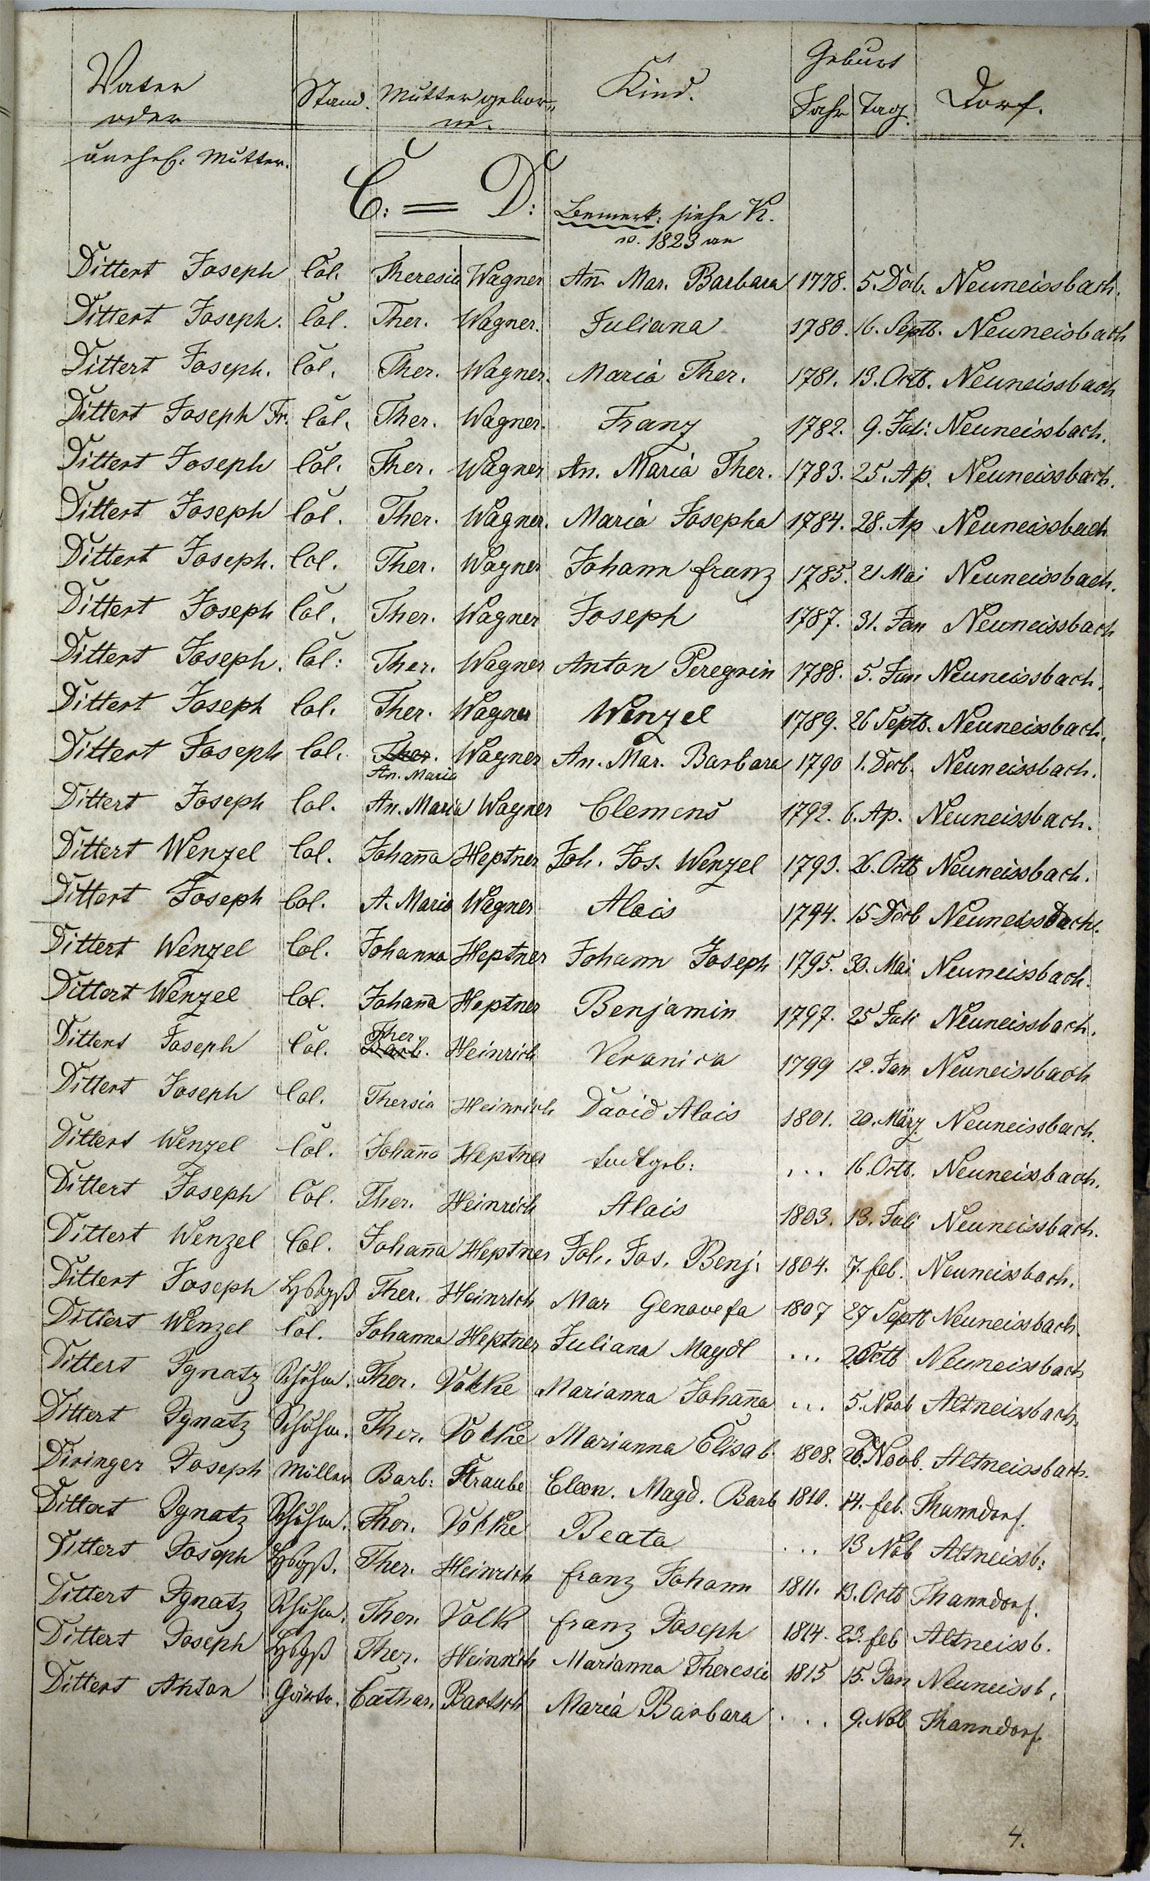 Vater oder unehel. Mutter. Stand. Mutter geborne. Kind. Geburt Jahr Tag. Dorf.
C. = D: Bemerk: siehe K.
v. 1823 an
Dittert Joseph Col. Theresia Wagner An̄ Mar. Barbara 1778. 5. Dcb. Neuneissbach.
Dittert Joseph. Col. Ther. Wagner. Juliana 1780. 16. Septb. Neuneisbach
Dittert Joseph. Col. Ther. Wagner. Maria Ther. 1781. 13. Octb. Neuneissbach
Dittert Joseph Fr. Col. Ther. Wagner. Franz 1782. 9. Juli: Neuneissbach.
Dittert Joseph Col. Ther. Wagner An. Maria Ther. 1783. 25. Ap. Neuneissbach.
Dittert Joseph Col. Ther. Wagner. Maria Josepha 1784. 28. Ap Neuneissbach
Dittert Joseph. Col. Ther. Wagner Johann franz 1785. 21 Mai Neuneissbach.
Dittert Joseph Col. Ther. Wagner Joseph 1787. 31. Jan Neuneissbach
Dittert Joseph. Col: Ther. Wagner Anton Peregrin 1788. 5. Jun Neuneissbach.
Dittert Joseph Col. Ther. Wagner Wenzel 1789. 26 Septb. Neuneissbach.
Dittert Joseph Col. Ther. Wagner An. Mar. Barbara 1790 1. Dcb. Neuneissbach.
An. Maria
Dittert Joseph Col. An. Maria Wagner Clemens 1792. 6. Ap. Neuneissbach.
Dittert Wenzel Col. Johan̄a Heptner Joh. Jos. Wenzel 1793. 26. Octb Neuneissbach.
Dittert Joseph Col. A. Maria Wagner Alois 1794. 15 Dcb Neuneissbach.
Dittert Wenzel Col. Johanna Heptner Johann Joseph 1795. 30. Mai Neuneissbach.
Dittert Wenzel Col. Johan̄a Heptner Benjamin 1797. 25 Juli Neuneissbach.
Ther
Dittert Joseph Col. Barb. Heinrich Veronica 1799 12. Jan Neuneissbach
Dittert Joseph Col. Thersia Heinrich David Alois 1801. 20. März Neuneissbach.
Dittert Wenzel Col. Johan̄a Heptner todtgeb: ... 16. Octb. Neuneissbach.
Dittert Joseph Col. Ther. Heinrich Alois 1803. 13. Juli Neuneissbach.
Dittert Wenzel Col. Johan̄a Heptner Joh. Jos. Benj. 1804. 7. feb. Neuneissbach.
Dittert Joseph Ther. Heinrich Mar Genovefa 1807 27 Septb Neuneissbach.
Dittert Wenzel Col. Johanna Heptner Juliana Magdl ... Octb Neuneissbach
Dittert Ignatz Schuhm. Ther. Volke Marianna Johan̄a ... 5. Novb Altneissbach.
Dittert Ignatz Schuhm. Ther. Volke Marianna Elisab 1808. 26. Novb. Altneissbach.
Diringer Joseph Müller Barb: Straube Eleon. Magd. Barb 1810. 14. feb. Thanndorf.
Dittert Ignatz Schuhm. Ther. Volke Beata ... 13 Nob Altneissb:
Dittert Joseph Ther. Heinrich franz Johann 1811. 13. Octb Thanndorf.
Dittert Ignatz Schuhm. Ther. Volk franz Joseph 1814. 23. feb Altneissb.
Dittert Joseph Ther. Heinrich Marianna Theresia 1815 15. Jan Neuneissb.
Dittert Anton Gärtn. Cathar. Bartsch Maria Barbara .... 9. Nob Thanndorf.
4.